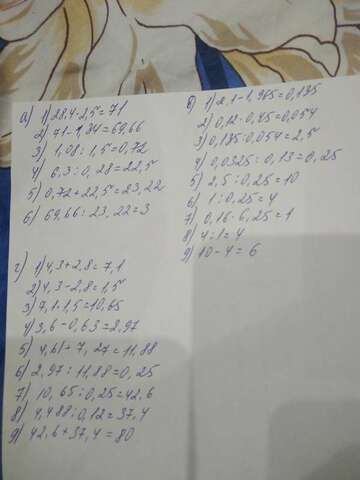 а) 1) 28,4·2,5=71
2) 71-1,34=69,66
3) 1,08:1,5=0,72
4) 6,3:0,28=22,5
5) 0,72+22,5=23,22
6) 69,66:23,22=3
б) 1) 2,1-1,965=0,135
2) 0,12·0,45=0,054
3) 0,135:0,054=2,5
4) 0,0325:0,13=0,25
5) 2,5:0,25=10
6) 1:0,25=4
7) 0,16·6,25=1
8) 4:1=4
9) 10-4=6
г) 1) 4,3+2,8=7,1
2) 4,3-2,8=1,5
3) 7,1·1,5=10,65
4) 3,6-0,63=2,97
5) 4,61+7,27=11,88
6) 2,97:11,88=0,25
7) 10,65:0,25=42,6
8) 4,488:0,12=37,4
9) 42,6+37,4=80